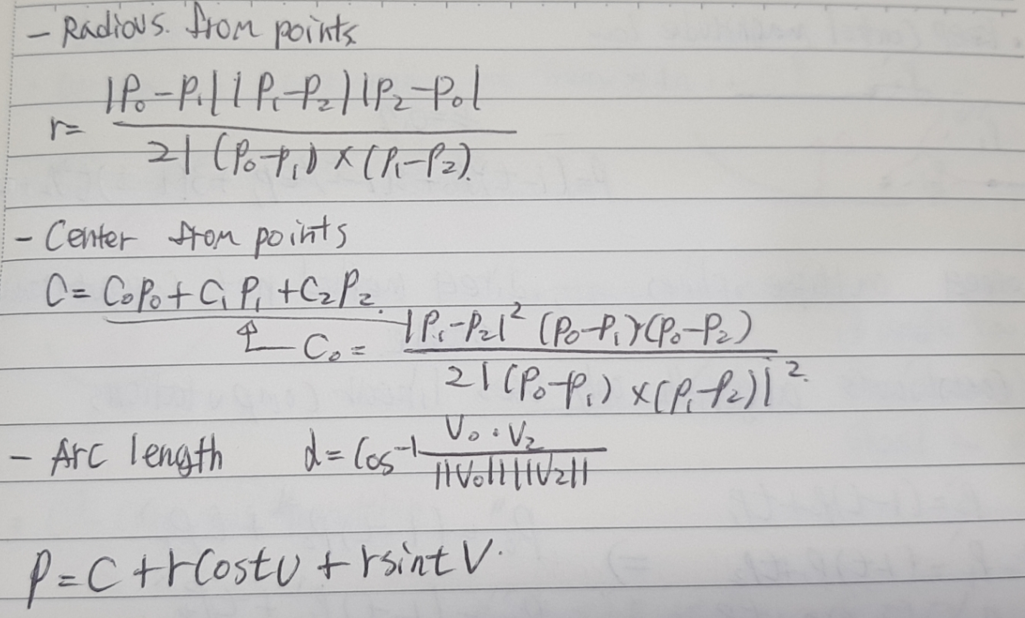 - Radious. from points
r= |P₀-P₁| |P₁-P₂| |P₂-P₀| / 2|(P₀-P₁) × (P₁-P₂)
- Center from points
C= C₀P₀ + C₁P₁ + C₂P₂.
C₀ = |P₁-P₂|² (P₀-P₁)·(P₀-P₂) / 2|(P₀-P₁) × (P₁-P₂)|².
- Arc length d = Cos⁻¹ V₀·V₂ / ||V₀|| ||V₂||
P = C + r cos t U + r sin t V.